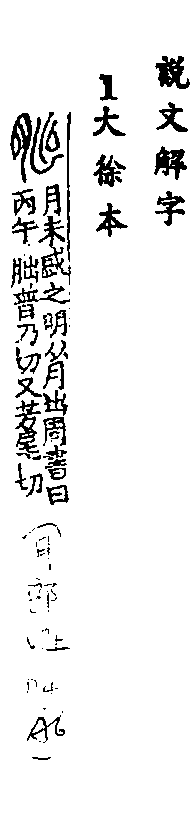 説文解字
1大徐本
月未盛之明从月出周書曰
丙午朏普乃切又芳尾切